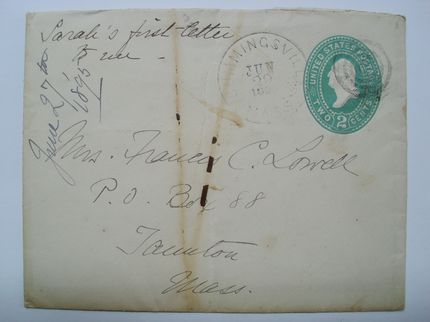 Sarah's first letter
to me
June 27th
1895
MINGSVIL
JUN
UNITED STATES POSTAGE
TWO CENTS
2
Mrs. Francis C. Lowell
P.O. Box 88
Taunton
Mass.